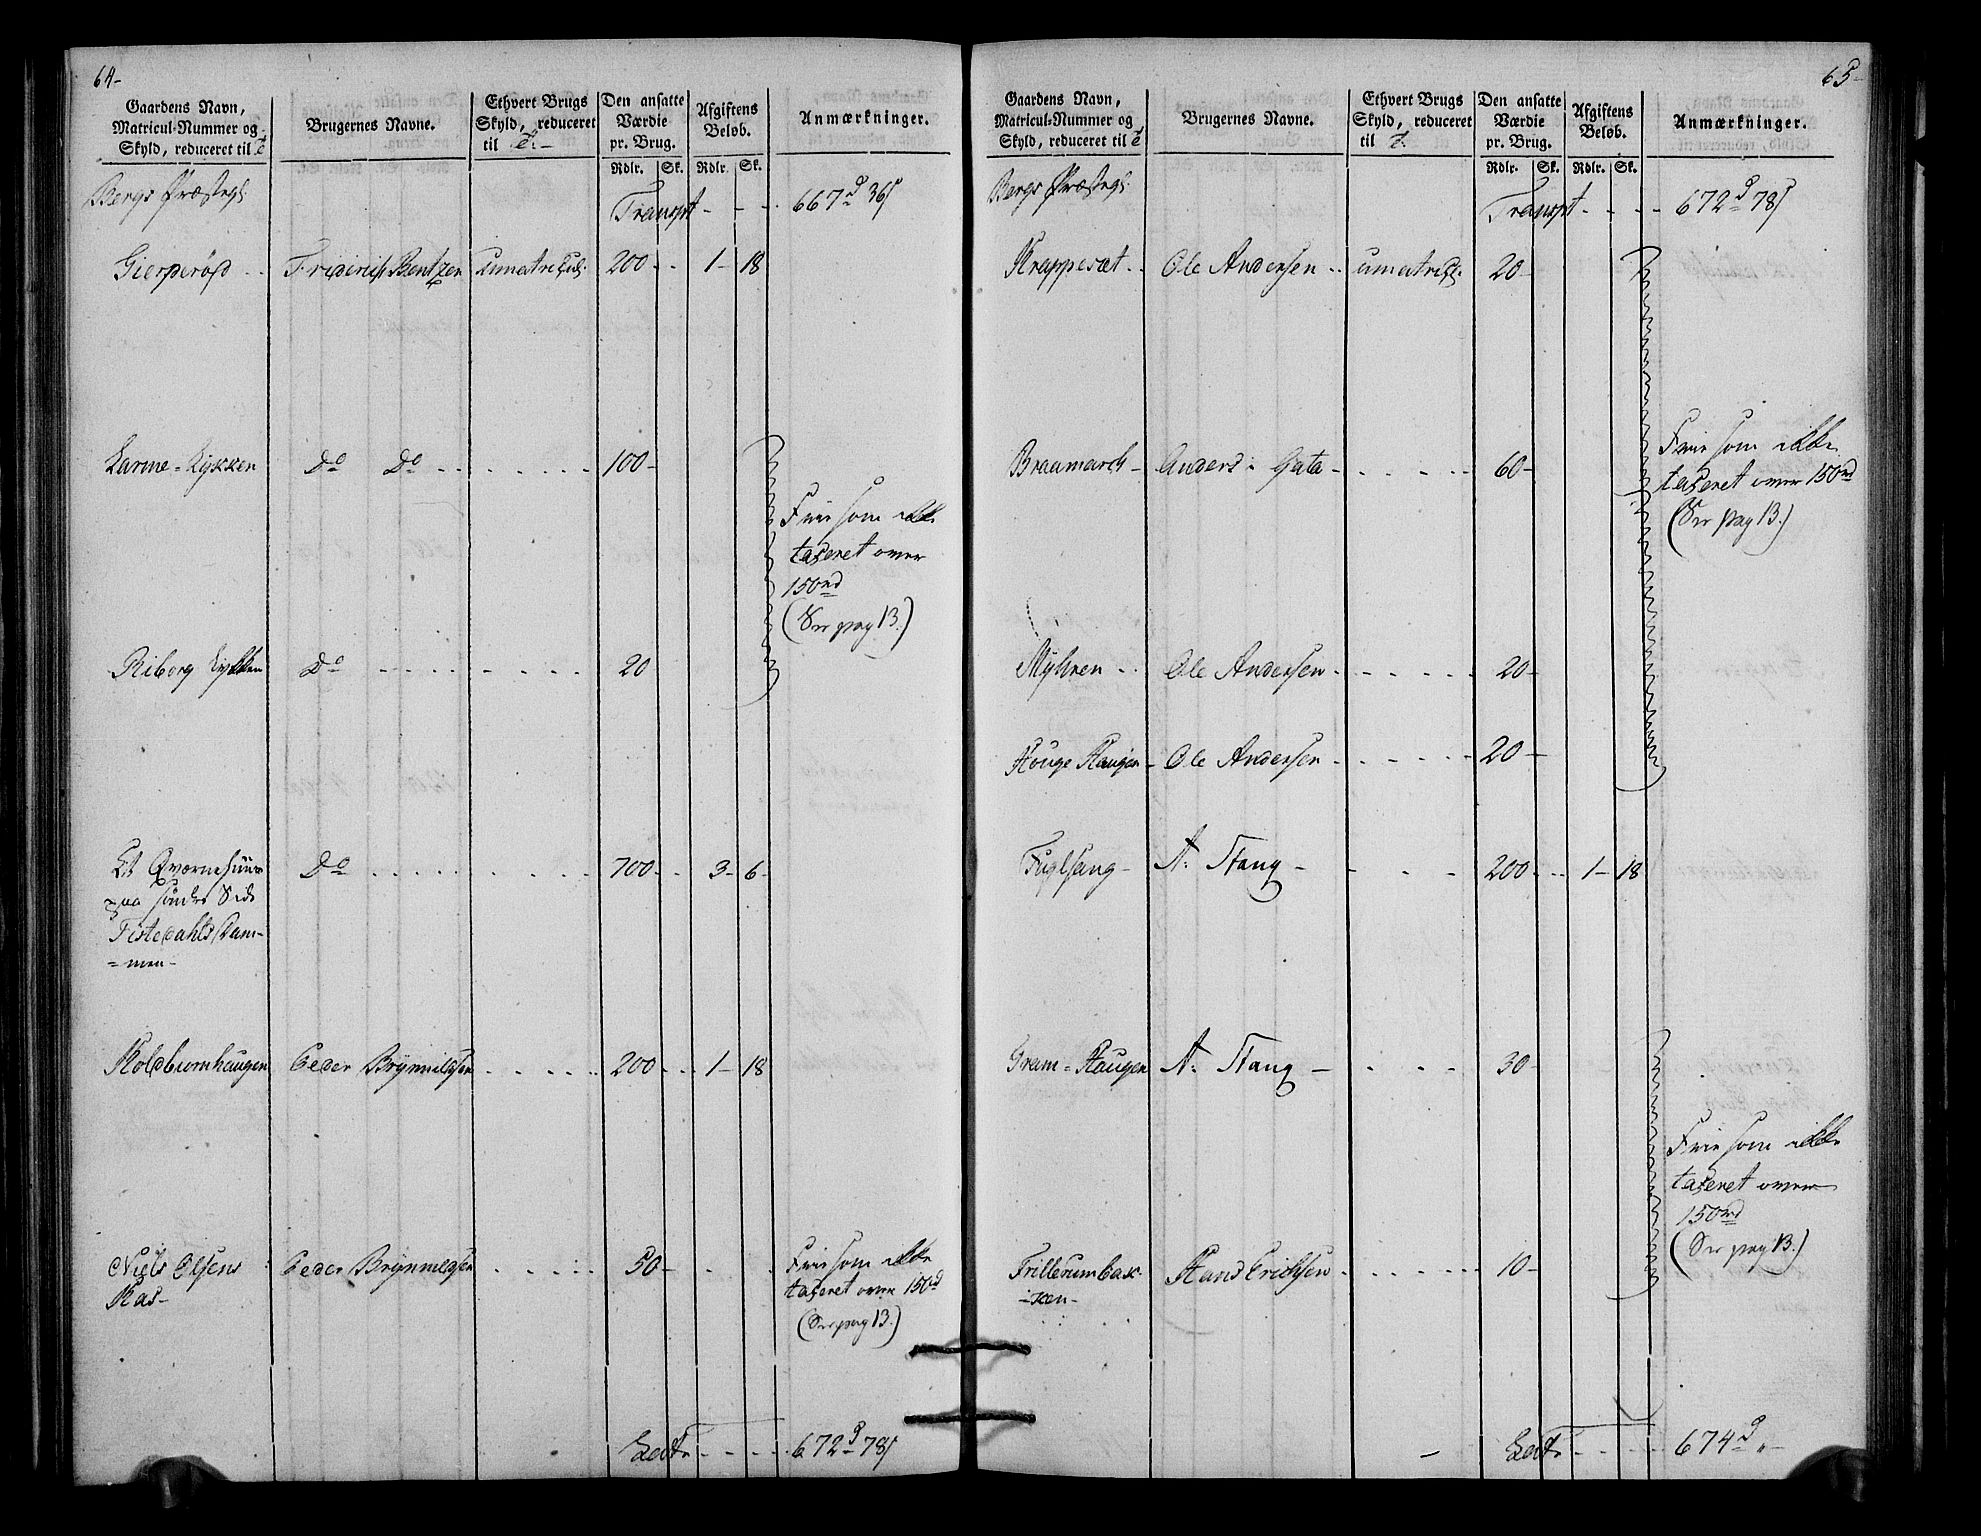 64-
Gaardens Navn,
Matricul-Nummer og
Skyld, reduceret til
Brugernes Navne.
Ethvert Brugs
Skyld, reduceret
til
Den ansatte
Værdie
pr. Brug.
Rdlr. Sk.
Afgiftens
Beløb.
Rdlr. Sk.
Anmærkninger.
Bergs Præstegl.
Transpt - - - 667 d 36 s
Gierperød - - Friderich Bentzen 200 - - 1 - 18
Larme-Løkken Do Do - - - - - - - 100 -
Frie som ikke
taxeret over
150 rd
(See pag 13.)
Riborg Løkken Do - - - - - - - - 20
Et Qværnehuus Do - - - - - - - - 700 - - 3 - 6 -
paa søndre Side
Tistedahls Dam-
=men -
Koldbiørnhaugen Peder Brynnildsen - - - - - 200 - - 1 - 18
Niels Olsens Peder Brynnildsen - - - - 50 - - -
Ras -
Frie som ikke
taxeret over 150 rd
(See pag 13.)
Lat - - - - 672 d 78 s
65-
Gaardens Navn,
Matricul-Nummer og
Skyld, reduceret til
Brugernes Navne.
Ethvert Brugs
Skyld, reduceret
til
Den ansatte
Værdie
pr. Brug.
Rdlr. Sk.
Afgiftens
Beløb.
Rdlr. Sk.
Anmærkninger.
Bergs Præstegl.
Transpt - - - - 672 d 78 s
Krappesæt - - Ole Andersen - - 20 -
Braamarch - Anders i Gata - - - - - 60 -
Frie som ikke
taxeret over 150 rd
(See pag 13.)
Myhren - - Ole Andersen - - - - - 20 -
Houge Haugen - Ole Andersen - - - - - 20 -
Fuglsang - A: Stang - - - - 200 - - 1 - 18
Gram-Haugen A: Stang - - - - 30 -
Frie som ikke
taxeret over
150 rd
(See pag 13.)
Trillerumbak- Hans Erichsen - - - - - - 10 -
=ken -
Lat - - - - 674 d „ -